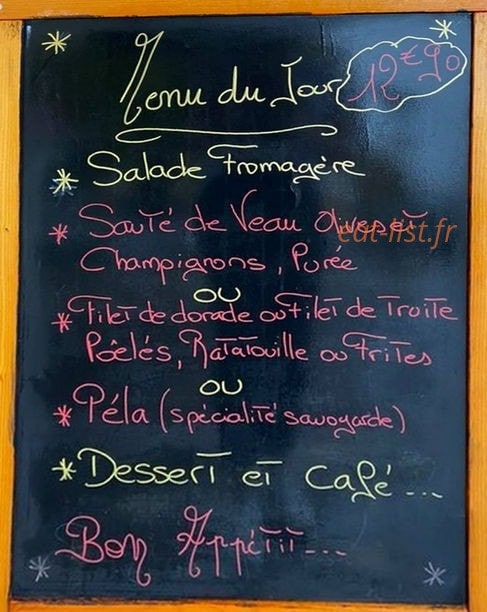 Menu du Jour 12€90
* Salade Fromagère
* Sauté de Veau
eat-list.fr
Champignons, Purée
ou
* Filet de dorade ou Filet de Truite
Poêlés, Ratatouille ou Frites
ou
* Péla (spécialité savoyarde)
* Dessert et Café...
Bon Appétit...